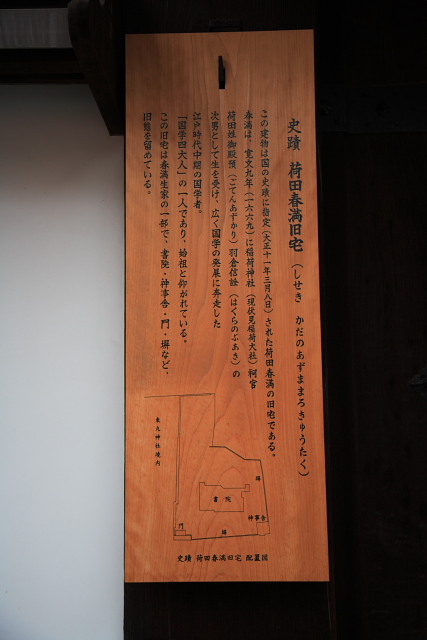 史蹟 荷田春満旧宅（しせき かだのあずままろきゅうたく）
この建物は国の史蹟に指定（大正十一年三月八日）された荷田春満の旧宅である。
春満は、寛文九年（一六六九）に稲荷神社（現伏見稲荷大社）祠官
荷田姓御殿預（ごてんあずかり）羽倉信詮（はくらのぶあき）の
次男として生を受け、広く国学の発展に奔走した
江戸時代中期の国学者。
「国学四大人」の一人であり、始祖と仰がれている。
この旧宅は春満生家の一部で、書院・神事舎・門・塀など、
旧態を留めている。
東丸神社境内
塀
書院
神事舎
門
塀
史蹟 荷田春満旧宅 配置図